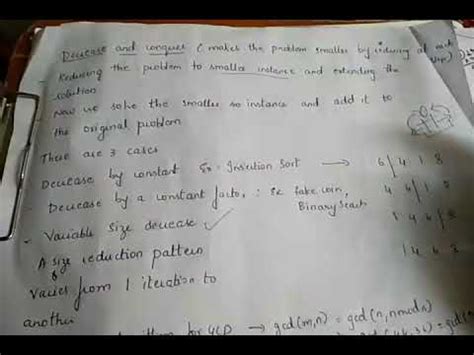 Decrease and conquer (makes the problem smaller by reducing at each step)
Reducing the problem to smaller instance and extending the
solution
Now we solve the smaller instance and add it to
the original problem
There are 3 cases
Decrease by constant Ex: Insertion Sort → 6 | 4 1 8
- Decrease by a constant factor : Ex fake coin, 4 6 | 1 8
Binary Search 1 4 6 | 8
- Variable Size decrease ✓ 1 4 6 8
A size reduction pattern
varies from 1 iteration to
another
for GCD → gcd(m,n) = gcd(n, n mod n)